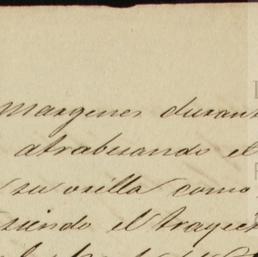 margenes durant
atrabesando el
su orilla como
siendo el trayec